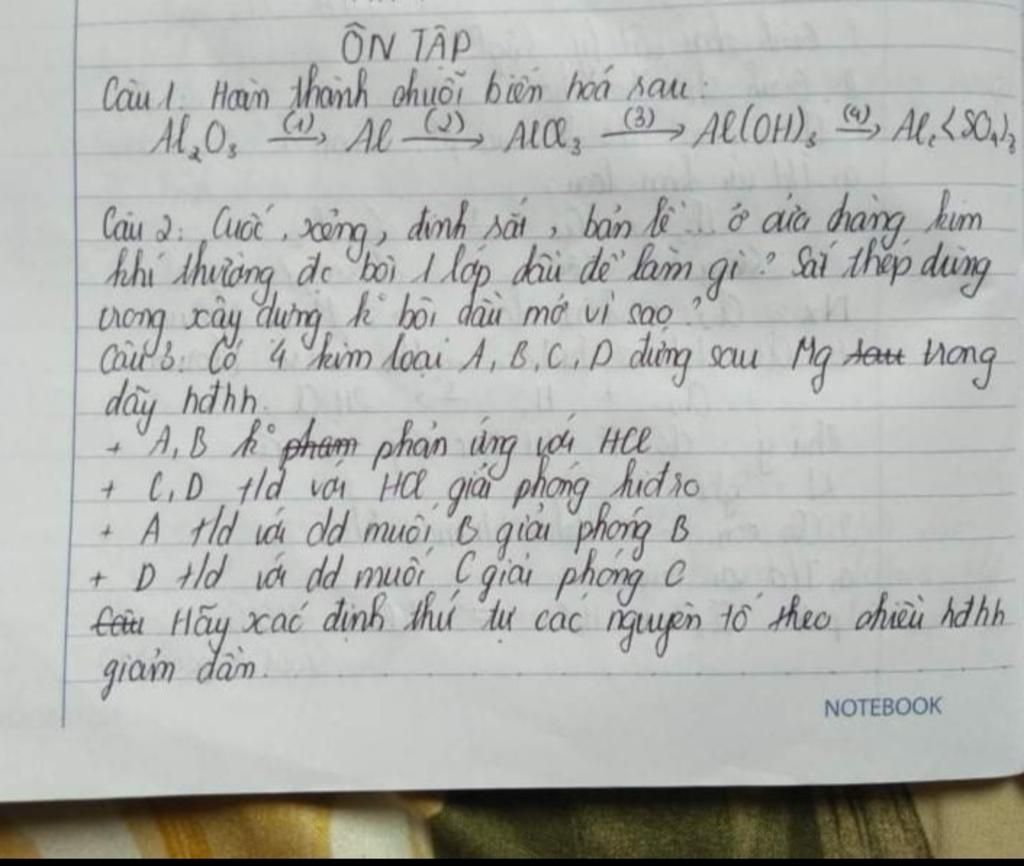 ÔN TẬP
Câu 1. Hoàn thành chuỗi biến hoá sau:
Al₂O₃ (1)→ Al (2)→ AlCl₃ (3)→ Al(OH)₃ (4)→ Al₂(SO₄)₃
Câu 2: Cuốc, xẻng, đinh sắt, bản lề... ở cửa hàng kim
khí thường đc bôi 1 lớp dầu để làm gì? Sắt thép dùng
trong xây dựng k° bôi dầu mỡ vì sao?
Câu 3: Có 4 kim loại A, B, C, D đứng sau Mg trong
dãy hđhh.
+ A, B k° phản ứng với HCl
+ C, D t/d với HCl giải phóng hiđro
+ A t/d với dd muối B giải phóng B
+ D t/d với dd muối C giải phóng C
Hãy xác định thứ tự các nguyên tố theo chiều hđhh
giảm dần.
NOTEBOOK